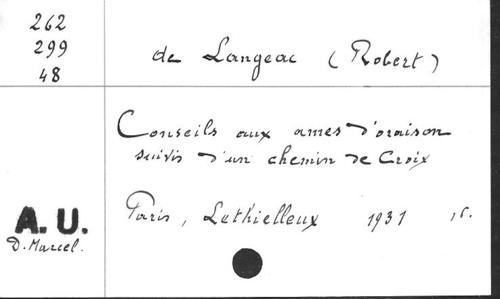 262
299
48
de Langeac (Robert)
Conseils aux ames d'oraison
suivis d'un chemin de Croix
Paris, Lethielleux 1931
A. U.
D. Marcel.